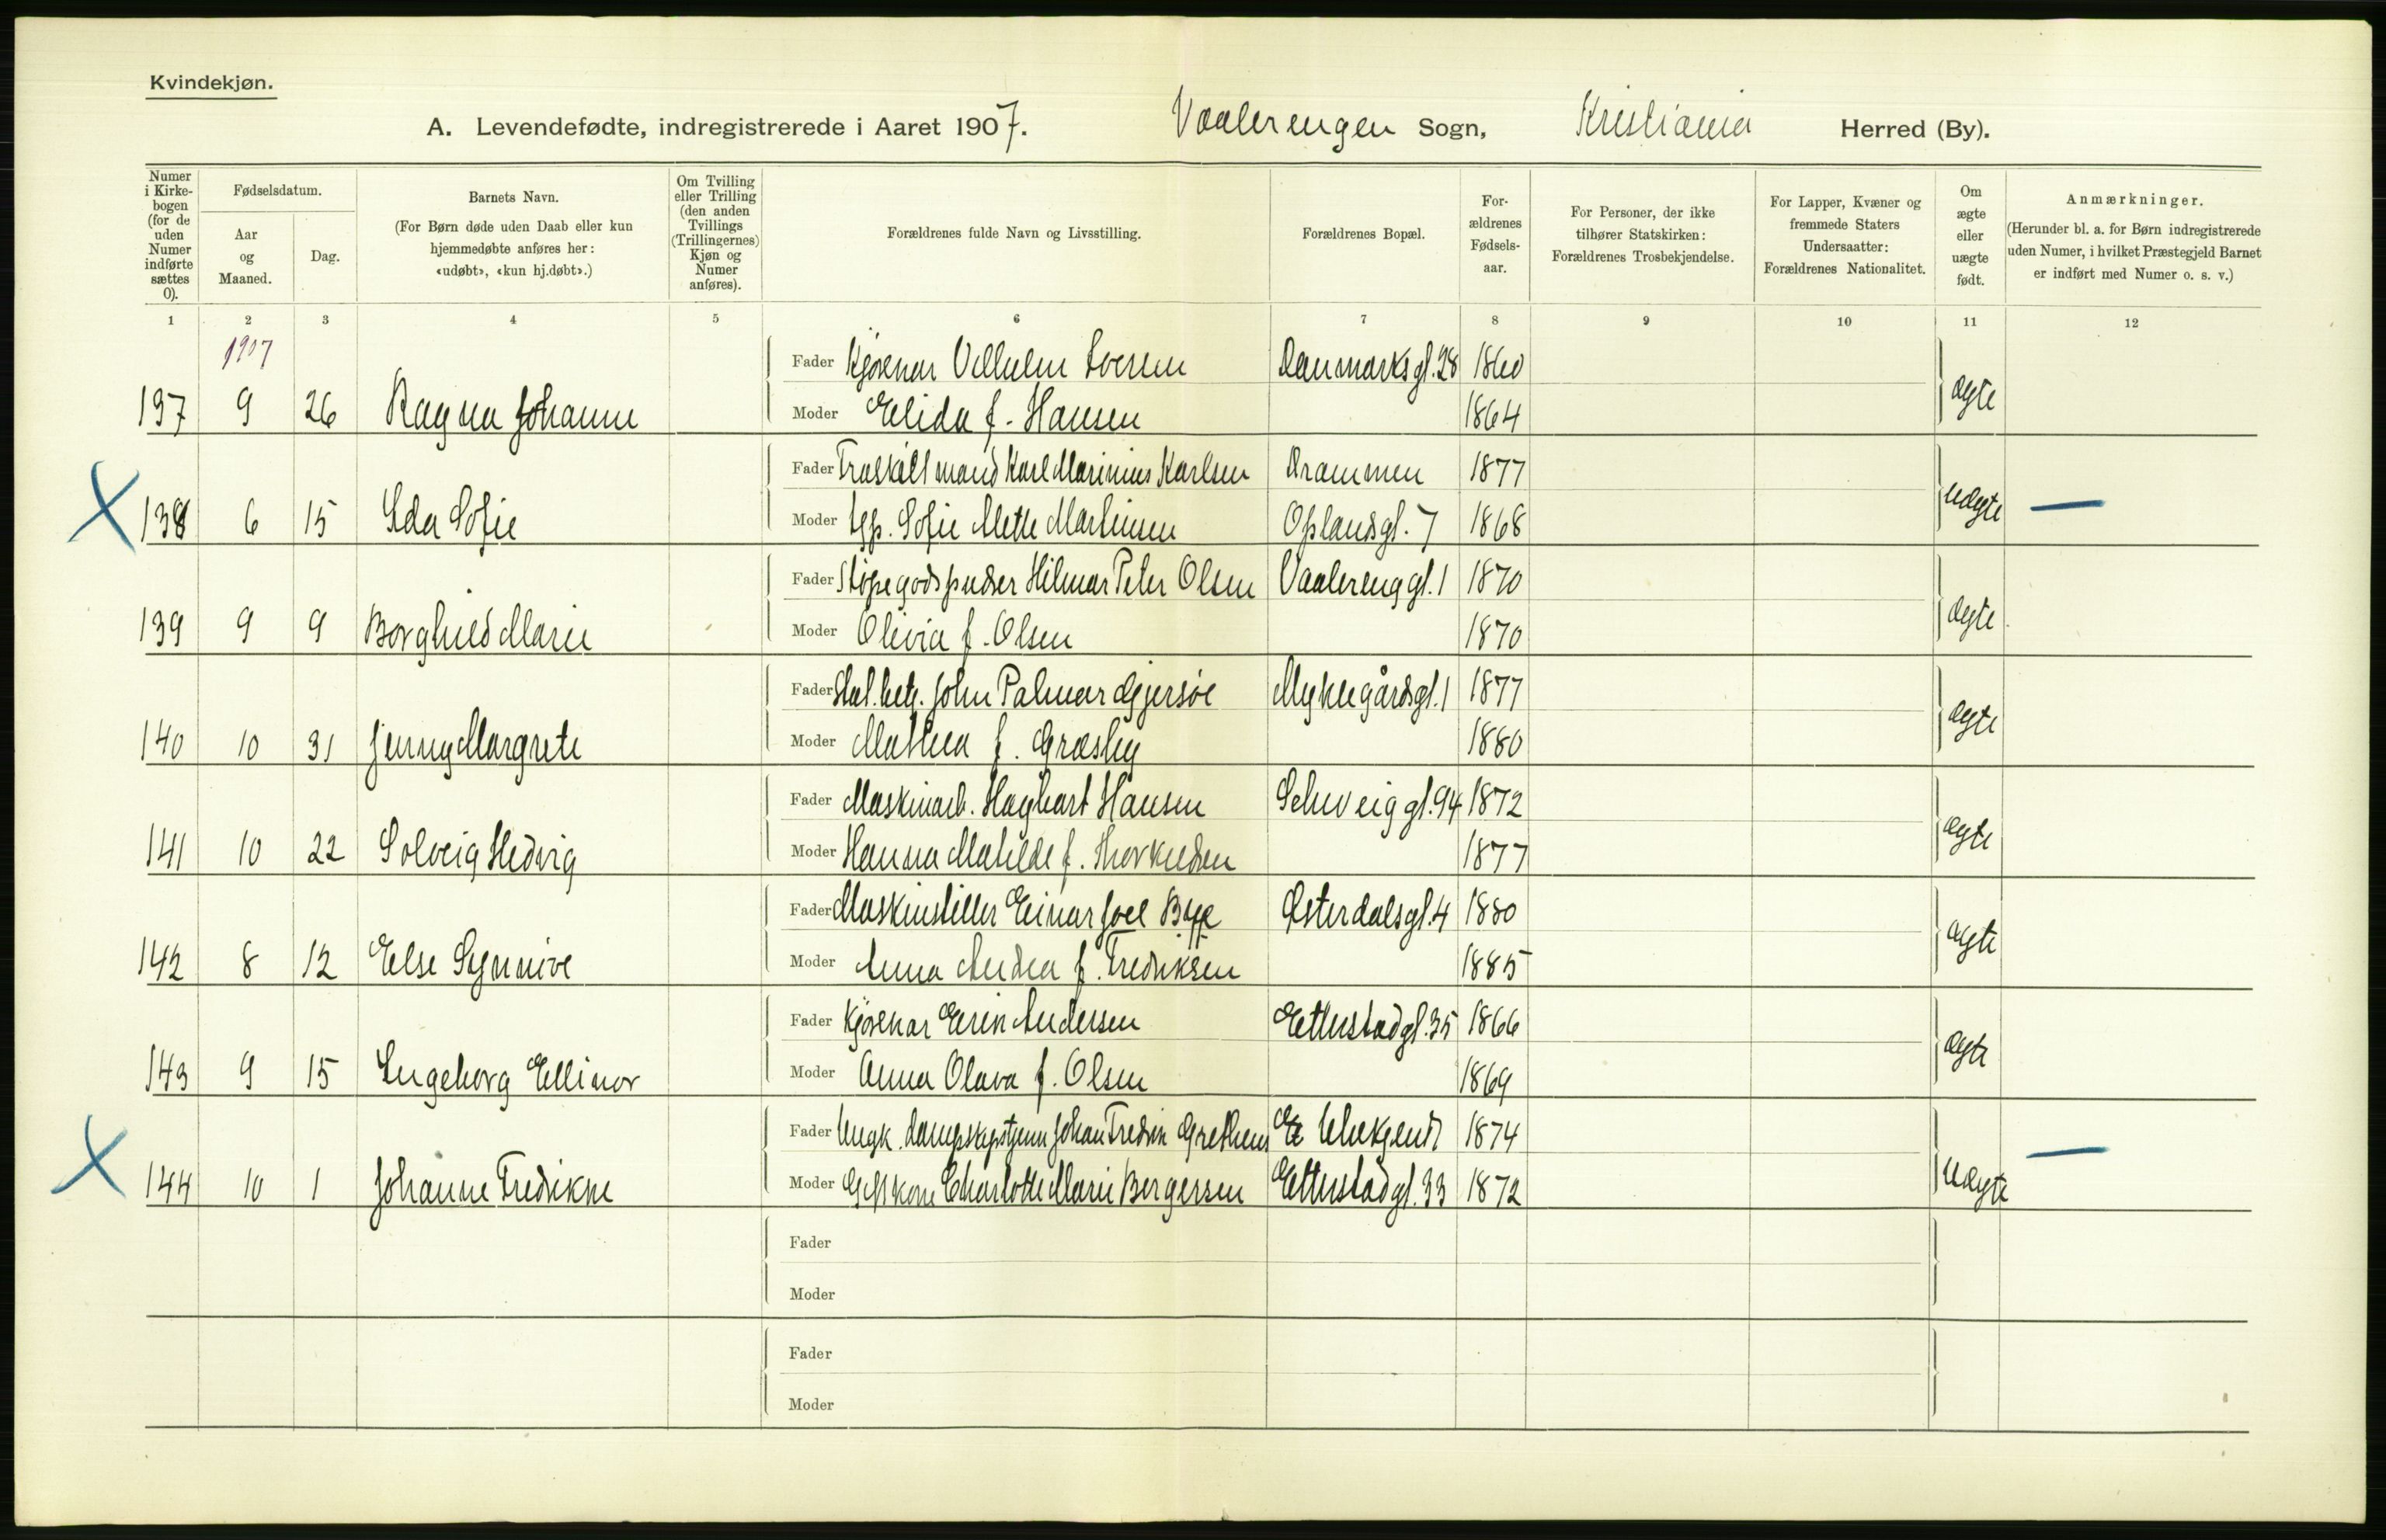 Kvindekjøn.
A. Levendefødte, indregistrerede i Aaret 1907. Vaalerengen Sogn, Kristiania Herred (By).
Numer i Kirkebogen (for de uden Numer indførte sættes 0).
Fødselsdatum.
Aar og Maaned.
Dag.
Barnets Navn.
(For Børn døde uden Daab eller kun hjemmedøbte anføres her: «udøbt», «kun hj.døbt».)
Om Tvilling eller Trilling (den anden Tvillings (Trillingernes) Kjøn og Numer anføres).
Forældrenes fulde Navn og Livsstilling.
Forældrenes Bopæl.
Forældrenes Fødselsaar.
For Personer, der ikke tilhører Statskirken: Forældrenes Trosbekjendelse.
For Lapper, Kvæner og fremmede Staters Undersaatter: Forældrenes Nationalitet.
Om ægte eller uægte født.
Anmærkninger.
(Herunder bl. a. for Børn indregistrerede uden Numer, i hvilket Præstegjeld Barnet er indført med Numer o. s. v.)
1 2 3 4 5 6 7 8 9 10 11 12
1907
Fader Kjørekar Vilhelm Iversen Danmarksgt. 28 1860
137 9 26 Ragna Johanne Moder Elida f. Hansen 1864 ægte
Fader Karl Marinius Karlsen Drammen 1877
X 138 6 15 Ida Sofie Moder Sofie Mette Martinsen Oplandsgt. 7 1868 uægte —
Fader Støpegodspudser Hilmar Peter Olsen Vaalerenggt. 1 1870
139 9 9 Borghild Marie Moder Olivia f. Olsen 1870 ægte
Fader Stat.betj. John Palmar Gjersøe Myklegårdsgt. 1 1877
140 10 31 Jenny Margrete Moder Mathea f. 1880 ægte
Fader Maskinarb. Hagbart Hansen Schweiggt. 94 1872
141 10 22 Solveig Hedvig Moder Hanna Matilde f. Thorkildsen 1877 ægte
Fader Maskinstiller Einar Joel Østerdalsgt. 4 1880
142 8 12 Else Synnive Moder Anna Andrea f. Fredriksen 1885 ægte
Fader Kjørekar Andersen Etterstadgt. 35 1866
143 9 15 Ingeborg Ellinor Moder Anna Olava f. Olsen 1869 ægte
Fader Ungk. Johan Fredrik Er Ubekjendt 1874
X 144 10 1 Johanne Fredikke Moder Gift kone Charlotte Marie Bergersen Etterstadgt. 33 1872 uægte —
Fader
Moder
Fader
Moder